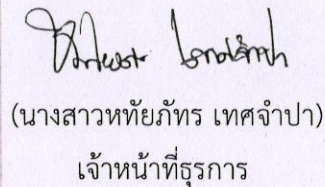 (นางสาวหทัยภัทร เทศจำปา)
เจ้าหน้าที่ธุรการ